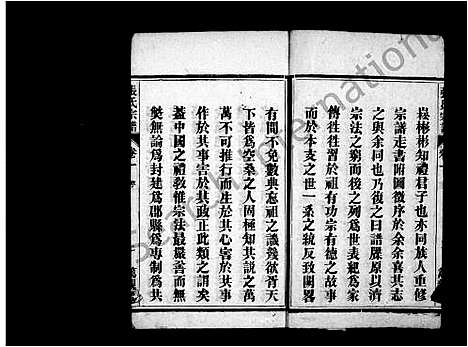 崧彬彬知禮君子也亦同族人重修
宗譜走書附圖徵序於余余喜其志
之與余同也乃復之曰譜牒原以濟
宗法之窮而後之列爲世表紀爲家
傳徃徃習於祖有功宗有德之故事
而於本支之世一系之統反致闕畧
有間不免數典忘祖之譏幾欲胥天
下皆爲空桑之人固極知其說之萬
萬不可推行而生於其心害於其事
作於其事害於其政正此類之謂矣
蓋中國之禮敎惟宗法最嚴善而無
獘無論爲封建爲郡縣爲專制爲共
張氏宗譜
卷一
序